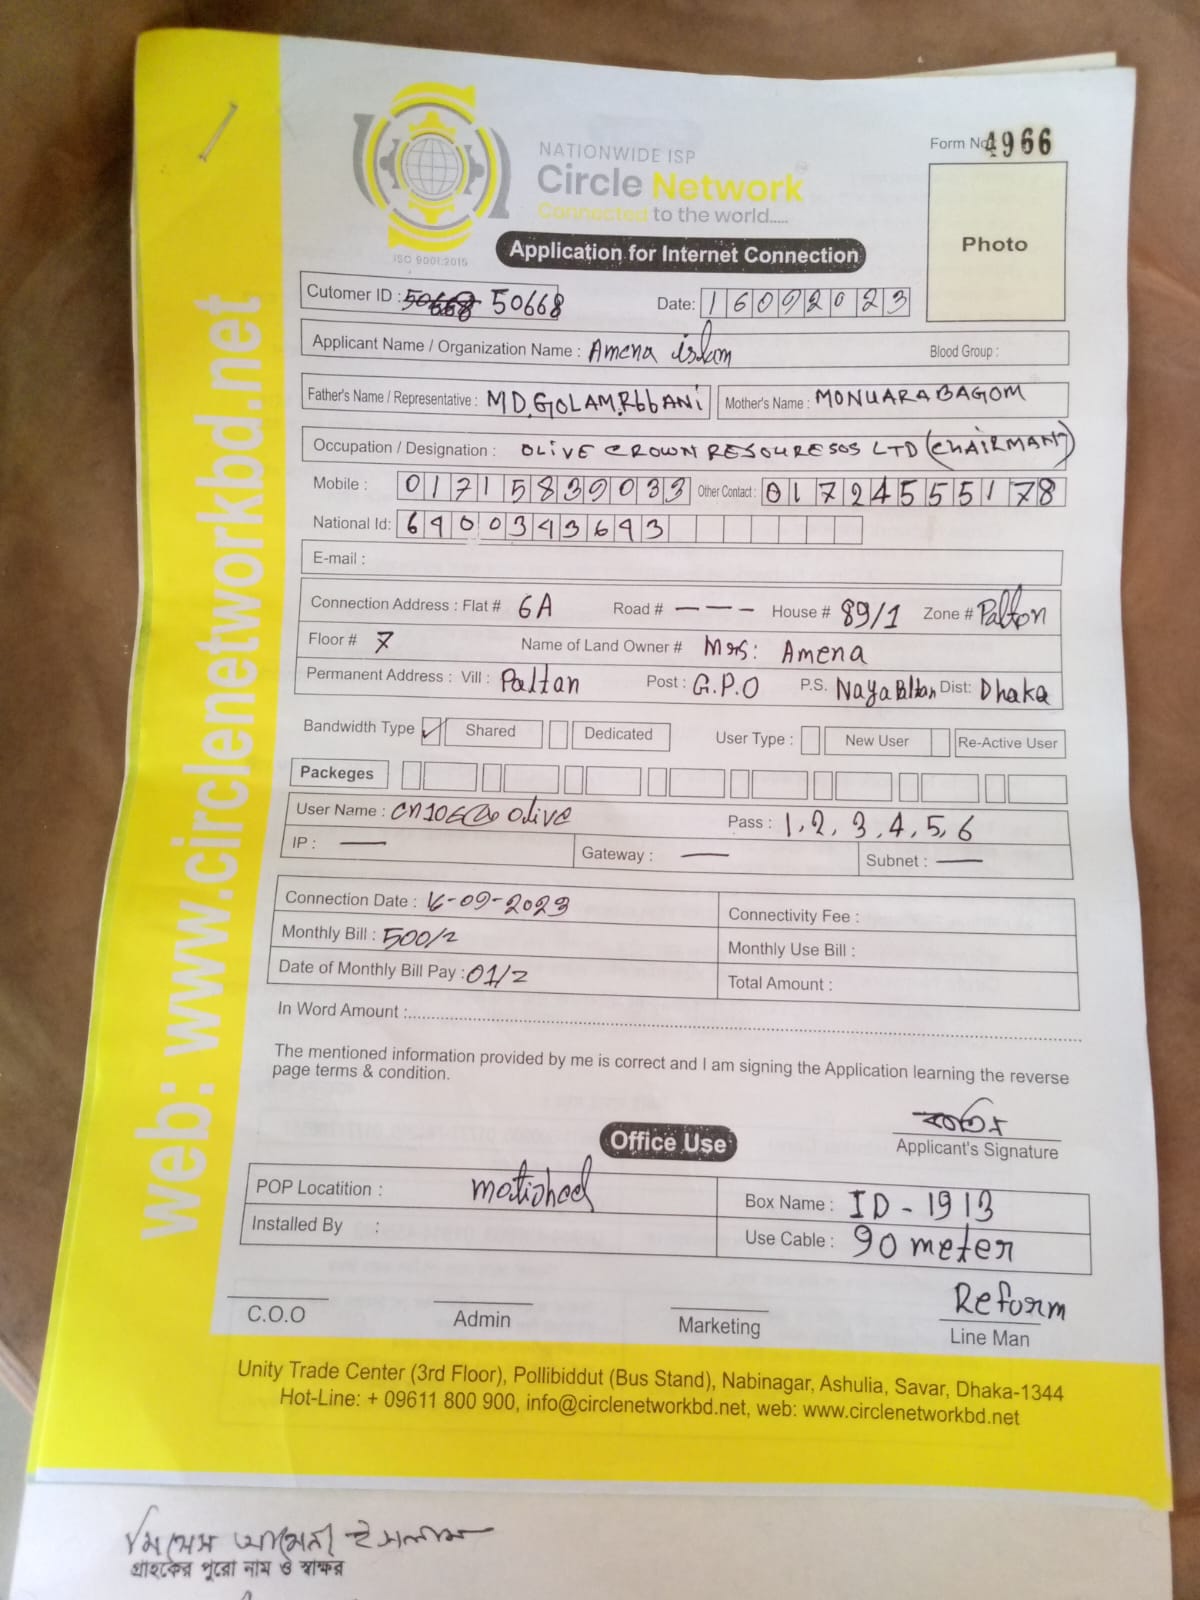 NATIONWIDE ISP
Circle Network
Connected to the world.....
ISO 9001:2015
Form No. 4966
Photo
Application for Internet Connection
Cutomer ID : 50668 Date: 16092023
Applicant Name / Organization Name : Amena islam Blood Group :
Father's Name / Representative : MD. GOLAM. RbbANi Mother's Name : MONUARA BAGOM
Occupation / Designation : OLIVE CROWN RESOURESOS LTD (CHAIRMAN)
Mobile : 01715839033 Other Contact : 01724555178
National Id: 6400343643
E-mail :
Connection Address : Flat # 6A Road # — — — House # 89/1 Zone # Palton
Floor # 7 Name of Land Owner # Mrs: Amena
Permanent Address : Vill : Paltan Post : G.P.O P.S. Naya Pltan Dist: Dhaka
Bandwidth Type ✓ Shared Dedicated User Type : New User Re-Active User
Packeges
User Name : Olive Pass : 1, 2, 3, 4, 5, 6
IP : — Gateway : — Subnet : —
Connection Date : 16-09-2023 Connectivity Fee :
Monthly Bill : 500/= Monthly Use Bill :
Date of Monthly Bill Pay : 01/= Total Amount :
In Word Amount :
The mentioned information provided by me is correct and I am signing the Application learning the reverse
page terms & condition.
Applicant's Signature
Office Use
POP Locatition : Box Name : ID - 1913
Installed By : Use Cable : 90 meter
Reform
C.O.O Admin Marketing Line Man
Unity Trade Center (3rd Floor), Pollibiddut (Bus Stand), Nabinagar, Ashulia, Savar, Dhaka-1344
Hot-Line: + 09611 800 900, info@circlenetworkbd.net, web: www.circlenetworkbd.net
web: www.circlenetworkbd.net
মিসেস আমেনা ইসলাম
গ্রাহকের পুরো নাম ও স্বাক্ষর